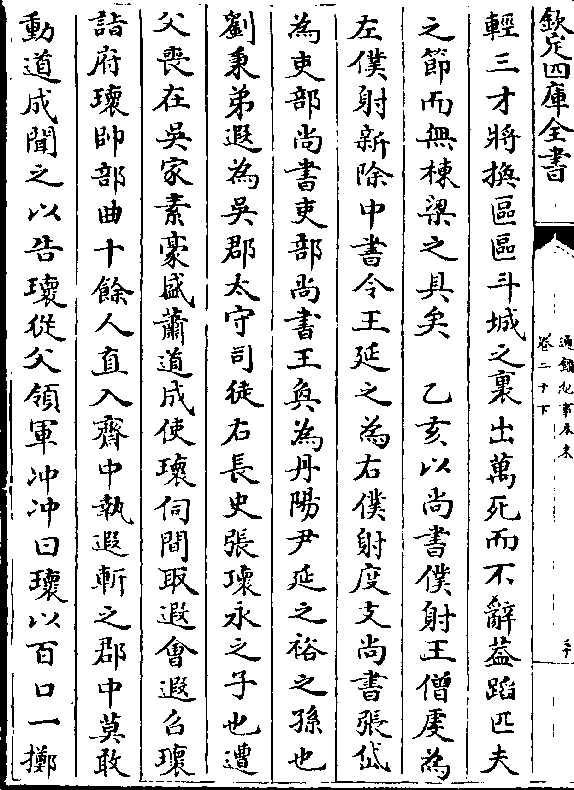 欽定四庫全書
通鑑紀事本末
卷二十下
輕三才將換區區斗城之裏出萬死而不辭葢蹈匹夫
之節而無棟梁之具矣　乙亥以尚書僕射王僧䖍為
左僕射新除中書令王延之為右僕射度支尚書張岱
為吏部尚書吏部尚書王奐為丹陽尹延之裕之孫也
劉秉弟遐為吳郡太守司徒右長史張瓌永之子也遭
父喪在吳家素豪盛蕭道成使瓌伺間取遐會遐召瓌
詣府瓌帥部曲十餘人直入齋中執遐斬之郡中莫敢
動道成聞之以告瓌從父領軍冲冲曰瓌以百口一擲